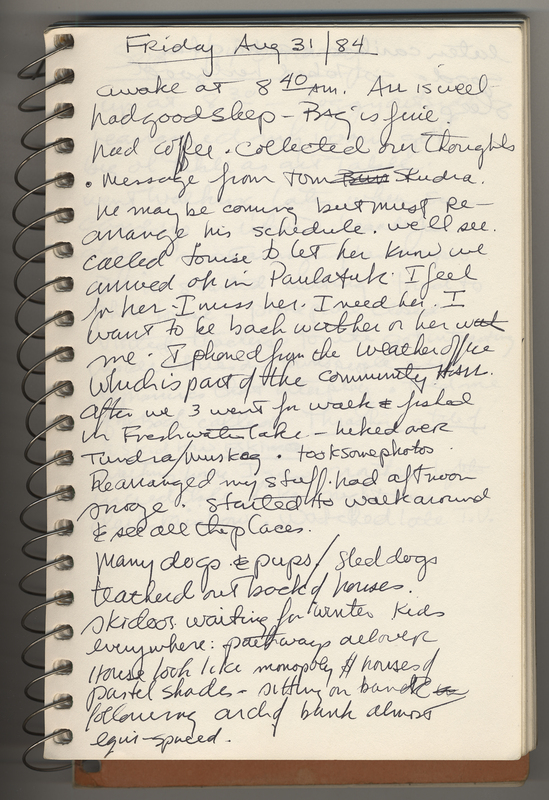 Friday Aug 31/84
awake at 8 40 AM. All is well
had good sleep - BAG is fine.
had coffee. collected our thoughts
. message from Tom Skudra.
he may be coming but must Re-
arrange his schedule. we'll see.
called Louise to let her know we
arrived ok in Paulatuk. I feel
for her. I miss her. I need her. I
want to be back with her or her with
me. I phoned from the weather office
which is part of the community Hall.
after we 3 went for walk & fished
in Freshwater lake - hiked over
Tundra/muskeg. took some photos.
Rearranged my stuff. had afternoon
snooze. Started to walk around
& see all the places.
Many dogs & pups/ sled dogs
teatherd out back of houses.
skidoos waiting for winter Kids
everywhere: pathways all over
House look like monopoly houses of
pastel shades - sitting on bank
following arc of bank almost
equi-spaced.